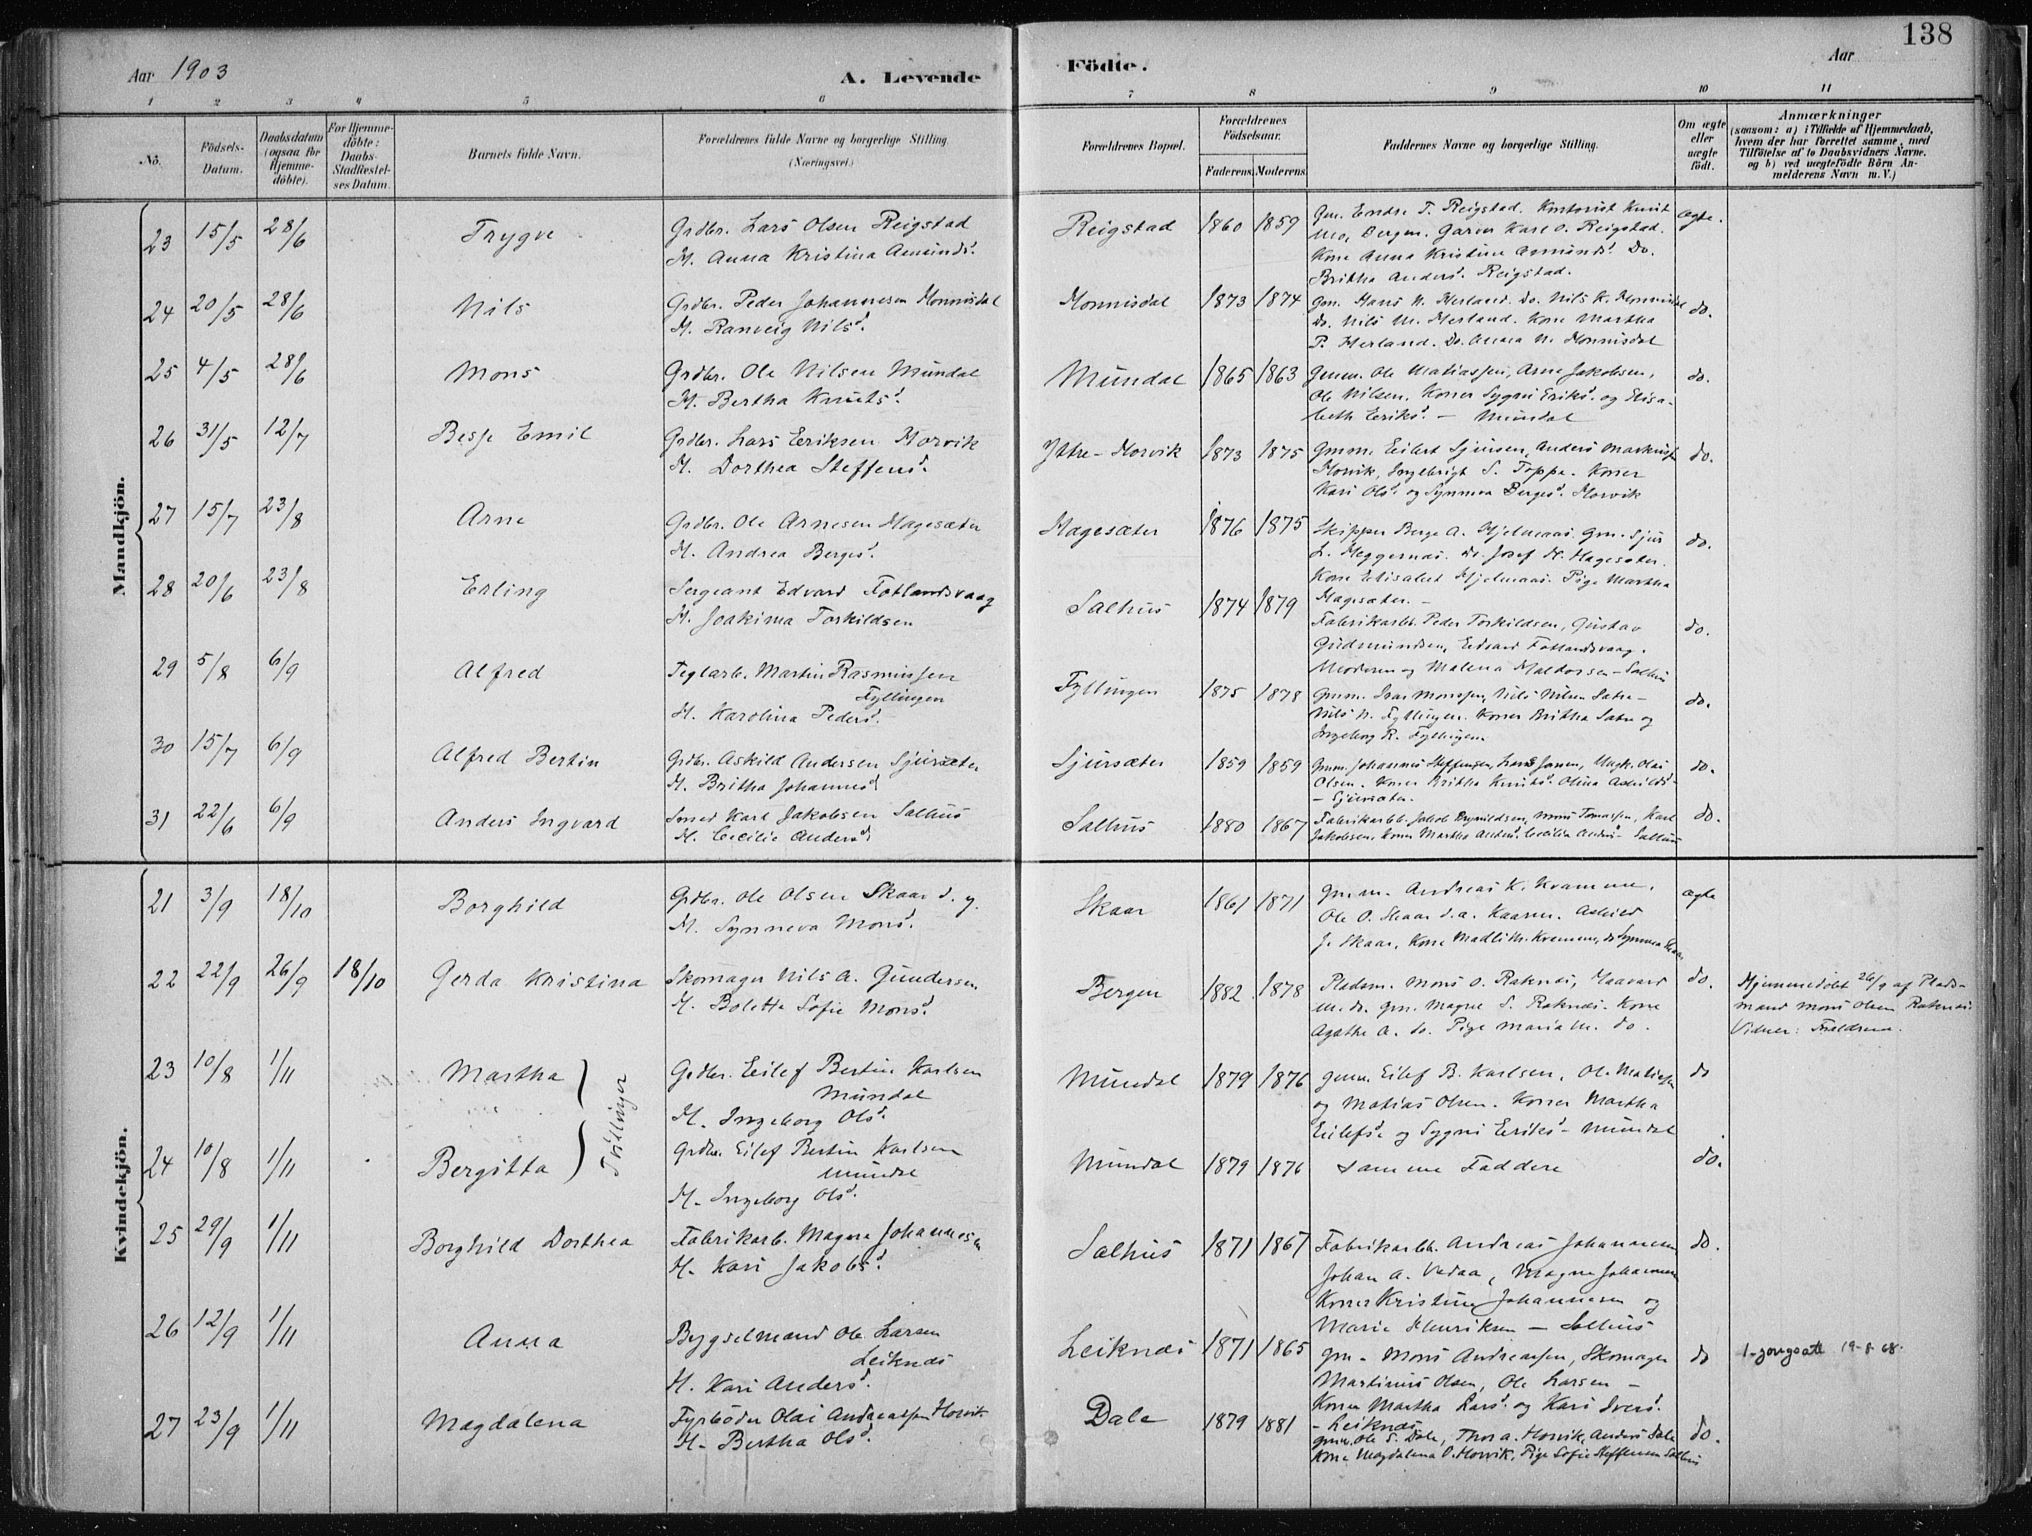 138
Aar 1903
A. Levende
Födte.
Aar
1 2 3 4 5 6 7 8 9 10 11
No.
Födsels-Datum.
Daabsdatum (ogsaa for Hjemme-döbte).
For Hjemme-döbte: Daabs-Stadfæstel-ses Datum.
Barnets fulde Navn.
Forældrenes fulde Navne og borgerlige Stilling (Næringsvei.)
Forældrenes Bopæl.
Forældrenes Födselsaar.
Faderens Moderens
Faddernes Navne og borgerlige Stilling.
Om ægte eller uægte födt.
Anmærkninger
(saasom: a) i Tilfælde af Hjemmedaab, hvem der har forrettet samme, med Tilföielse af to Daabsvidners Navne. og b) ved uægtefödte Börn An-melderens Navn m. V.)
Mandkjön.
23 15/5 28/6 Trygve
Grdbr. Lars Olsen Reigstad
H. Anna Kristina Amundsd.
Reigstad 1860 1859
Gm. Endre T. Reigstad. Knut
Mo, Bergen. Garver Karl O. Reigstad.
Kone Anna Kristine Amundsd. Do.
Britha Andersd. Reigstad.
ægte.
24 20/5 28/6 Nils
Grdbr. Peder Johannesen Monnisdal
H. Ranveig Nilsd.
Monnisdal 1873 1874
Gm. Hans N. Herland. Do. Nils K. Monnisdal
Do. Nils M. Herland. Kone Martha
P. Herland. Do. Anna N. Monnisdal
do.
25 4/5 28/6 Mons
Grdbr. Ole Nilsen Mundal
H. Bertha Knutsd.
Mundal 1865 1863
Gmm. Ole Matiassen, Arne Jakobsen,
Ole Nilsen. Koner Sygni Eriksd. og Elisa-
beth Eeriksd. - Mundal
do.
26 31/5 12/7 Besse Emil
Grdbr. Lars Eeriksen Horvik
H. Dorthea Steffensd.
Ytre-Horvik 1873 1875
Gmm. Eilert Sjursen, Anders Markussen
Horvik, Ingebrigt S. Toppe. Koner
Kari Olsd. og Synneva Bergesd. Horvik
do.
27 15/7 23/8 Arne
Grdbr. Ole Arnesen Hagesæter
H. Andrea Bergesd.
Hagesæter 1876 1875
Skipper Berge A. Hjelmaas. Gm. Sjur
L. Heggernæs. Do. Josef H. Hagesæter.
Kone Elisabet Hjelmaas. Pige Martha
Hagesæter. -
do.
28 20/6 23/8 Erling
Sergeant Edvard Fotlandsvaag
H. Joakima Torkildsen
Salhus 1874 1879
Fabrikarbb. Peder Torkildsen, Gustav
Gudmundsen, Edvard Fotlandsvaag.
Moderen og Malena Haldorsen - Salhus
do.
29 5/8 6/9 Alfred
Teglarb. Martin Rasmussen
Fyllingen
H. Karolina Pedersd.
Fyllingen 1875 1878
Gmm. Ivar Monssen, Nils Nilsen Sætre -
Nils N. Fyllingen. Koner Britha Sætre og
Ingeborg R. Fyllingen
do.
30 15/7 6/9 Alfred Bertin
Grdbr. Askild Andersen Sjursæter
H. Britha Johannesd.
Sjursæter 1859 1859
Gmm. Johannes Steffensen, Lars E Jansen, Ungk. Olai
Olsen. Koner Britha Knutsd. Olina Askildsd.
- Sjursæter.
do.
31 22/6 6/9 Anders Ingvard
Smed Karl Jakobsen Salhus
H. Cecilie Andersd.
Salhus 1880 1867
Fabrikarbb. Jakob Brynildsen, Mons Tomassen, Karl
Jakobsen, Koner Martha Andersd. Cecilia Andersd. Salhus
do.
Kvindekjön.
21 3/9 18/10 Borghild
Grdbr. Ole Olsen Skaar d. y.
H. Synneva Monsd.
Skaar 1861 1871
Gmm. Andreas K. Kvamme,
Ole O. Skaar d. a. Kaarm. Askild
J. Skaar, Kone Madli Kvamme, do Synneva Skaar
ægte
22 22/9 26/9 18/10 Gerda Kristina
Skomager Nils A. Gundersen
H. Bolette Sofie Monsd.
Bergen 1882 1878
Pladsm. Mons O. Raknæs, Haavard
M. do. Gm. Magne S. Raknæs. Kone
Agathe A. do. Pige Maria M. do.
do.
Hjemmedöbt 26/9 af Plads-
mand Mons Olsen Raknæs
Vidner: Forældrene
23 10/8 1/11 Martha
Grdbr. Eilef Bertin Karlsen
Mundal
H. Ingeborg Olsd.
Mundal 1879 1876
Gmm. Eilef B. Karlsen, Ole Matiassen
og Matias Olsen. Koner Martha
Eilefsd. og Sygni Eeriksd. - Mundal
do
Tvillinger
24 10/8 1/11 Bergitta
Grdbr. Eilef Bertin Karlsen
Mundal
H. Ingeborg Olsd.
Mundal 1879 1876
samme Faddere
do.
25 29/9 1/11 Borghild Dorthea
Fabrikarb. Magne Johannesen
H. Kari Jakobsd.
Salhus 1871 1867
Fabrikarbb. Andreas Johannesen,
Johan A. Vedaa, Magne Johannesen
Koner Kristine Johannesen og
Marie Henriksen - Salhus
do.
26 12/9 1/11 Anna
Bygselmand Ole Larsen
Leiknæs
H. Kari Andersd.
Leiknæs 1871 1865
Gm. Mons Andreassen, Skomager
Martinus Olsen, Ole Larsen -
Koner Martha Larsd. og Kari Iversd.
- Leiknæs
do
19-8-68.
27 23/9 1/11 Magdalena
Fyrböder Olai Andreassen Horvik
H. Bertha Olsd.
Dale 1879 1881
Gmm. Ole S. Dale, Thor A. Horvik, Anders Dale
Kone Magdalena O. Horvik, Pige Sofie Steffensen Salhus
do.